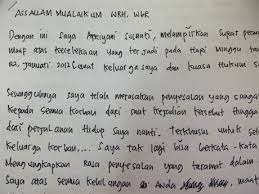 ASSALAM MUALAIKUM WRH. WBR
Dengan ini saya Apriyani Susanti, melampirkan surat perm
maaf atas kecelakaan yang terjadi pada hari minggu tan
22. Januari. 2012 Lewat keluarga saya dan kuasa Hukum s
Sesungguhnya saya telah merasakan penyesalan yang sanga
kepada semua korban dari saat kejadian tersebut hingga
dari perjalanan Hidup saya nanti. Terkhusus untuk se
keluarga korban.... Saya tak lagi bisa berkata-kata
Mengungkapkan rasa penyesalan yang teramat dalam
Saya atas semua kehilangan Anda